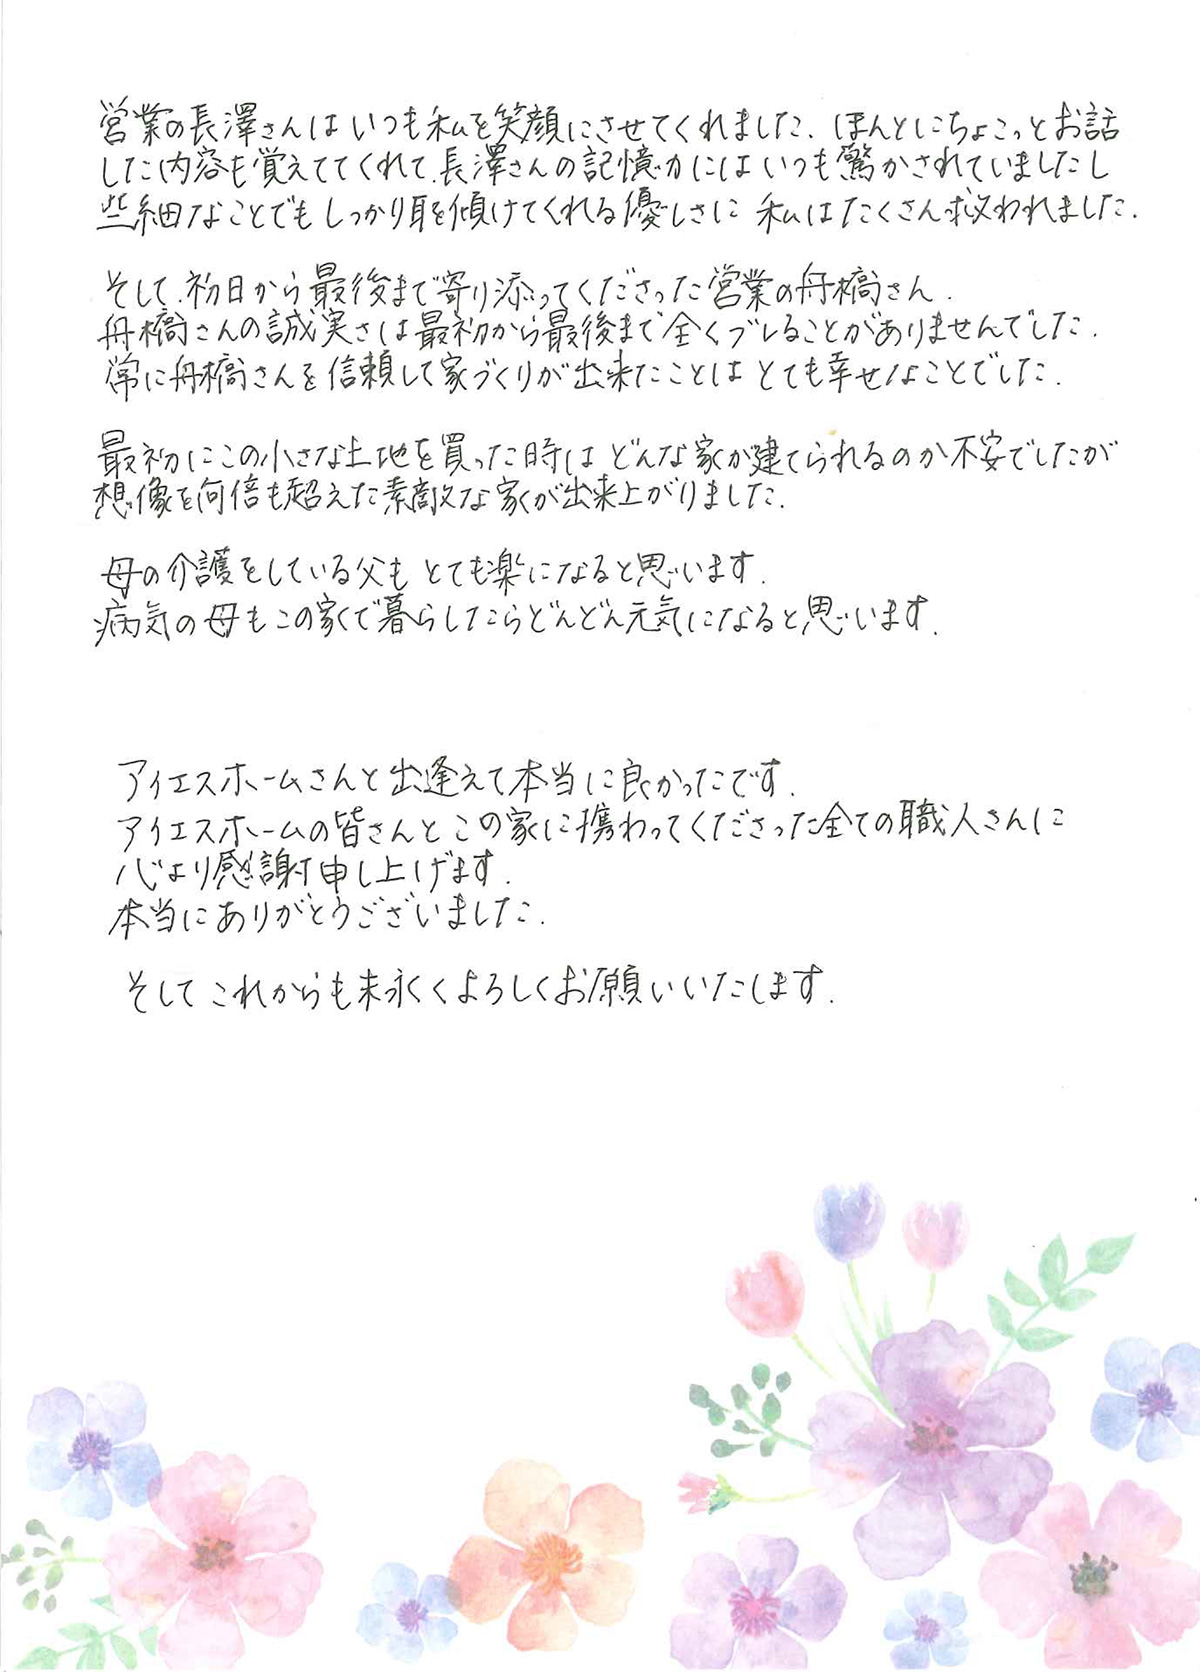 営業の長澤さんはいつも私を笑顔にさせてくれました. ほんとにちょこっとお話
した内容も覚えててくれて、長澤さんの記憶力にはいつも驚かされていましたし
些細なことでもしっかり耳を傾けてくれる優しさに 私はたくさん救われました.
そして、初日から最後まで寄り添ってくださった営業の舟橋さん.
舟橋さんの誠実さは最初から最後まで全くブレることがありませんでした.
常に舟橋さんを信頼して家づくりが出来たことは とても幸せなことでした.
最初にこの小さな土地を買った時は どんな家が建てられるのか不安でしたが
想像を何倍も超えた素敵な家が出来上がりました.
母の介護をしている父も とても楽になると思います.
病気の母もこの家で暮らしたらどんどん元気になると思います.
アイエスホームさんと出逢えて本当に良かったです.
アイエスホームの皆さんと この家に携わってくださった全ての職人さんに
心より感謝申し上げます.
本当にありがとうございました.
そして これからも末永くよろしくお願いいたします.